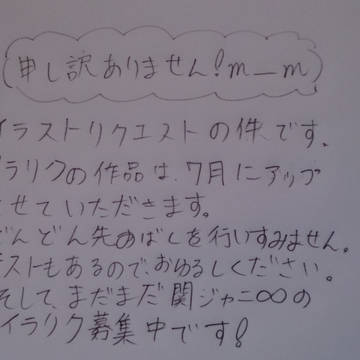 申し訳ありません!m_m
イラストリクエストの件です。
イラリクの作品は、7月にアップ
させていただきます。
どんどん先のばしを行いすみません。
テストもあるので、おゆるしください。
そして、まだまだ関ジャニ∞の
イラリク募集中です!